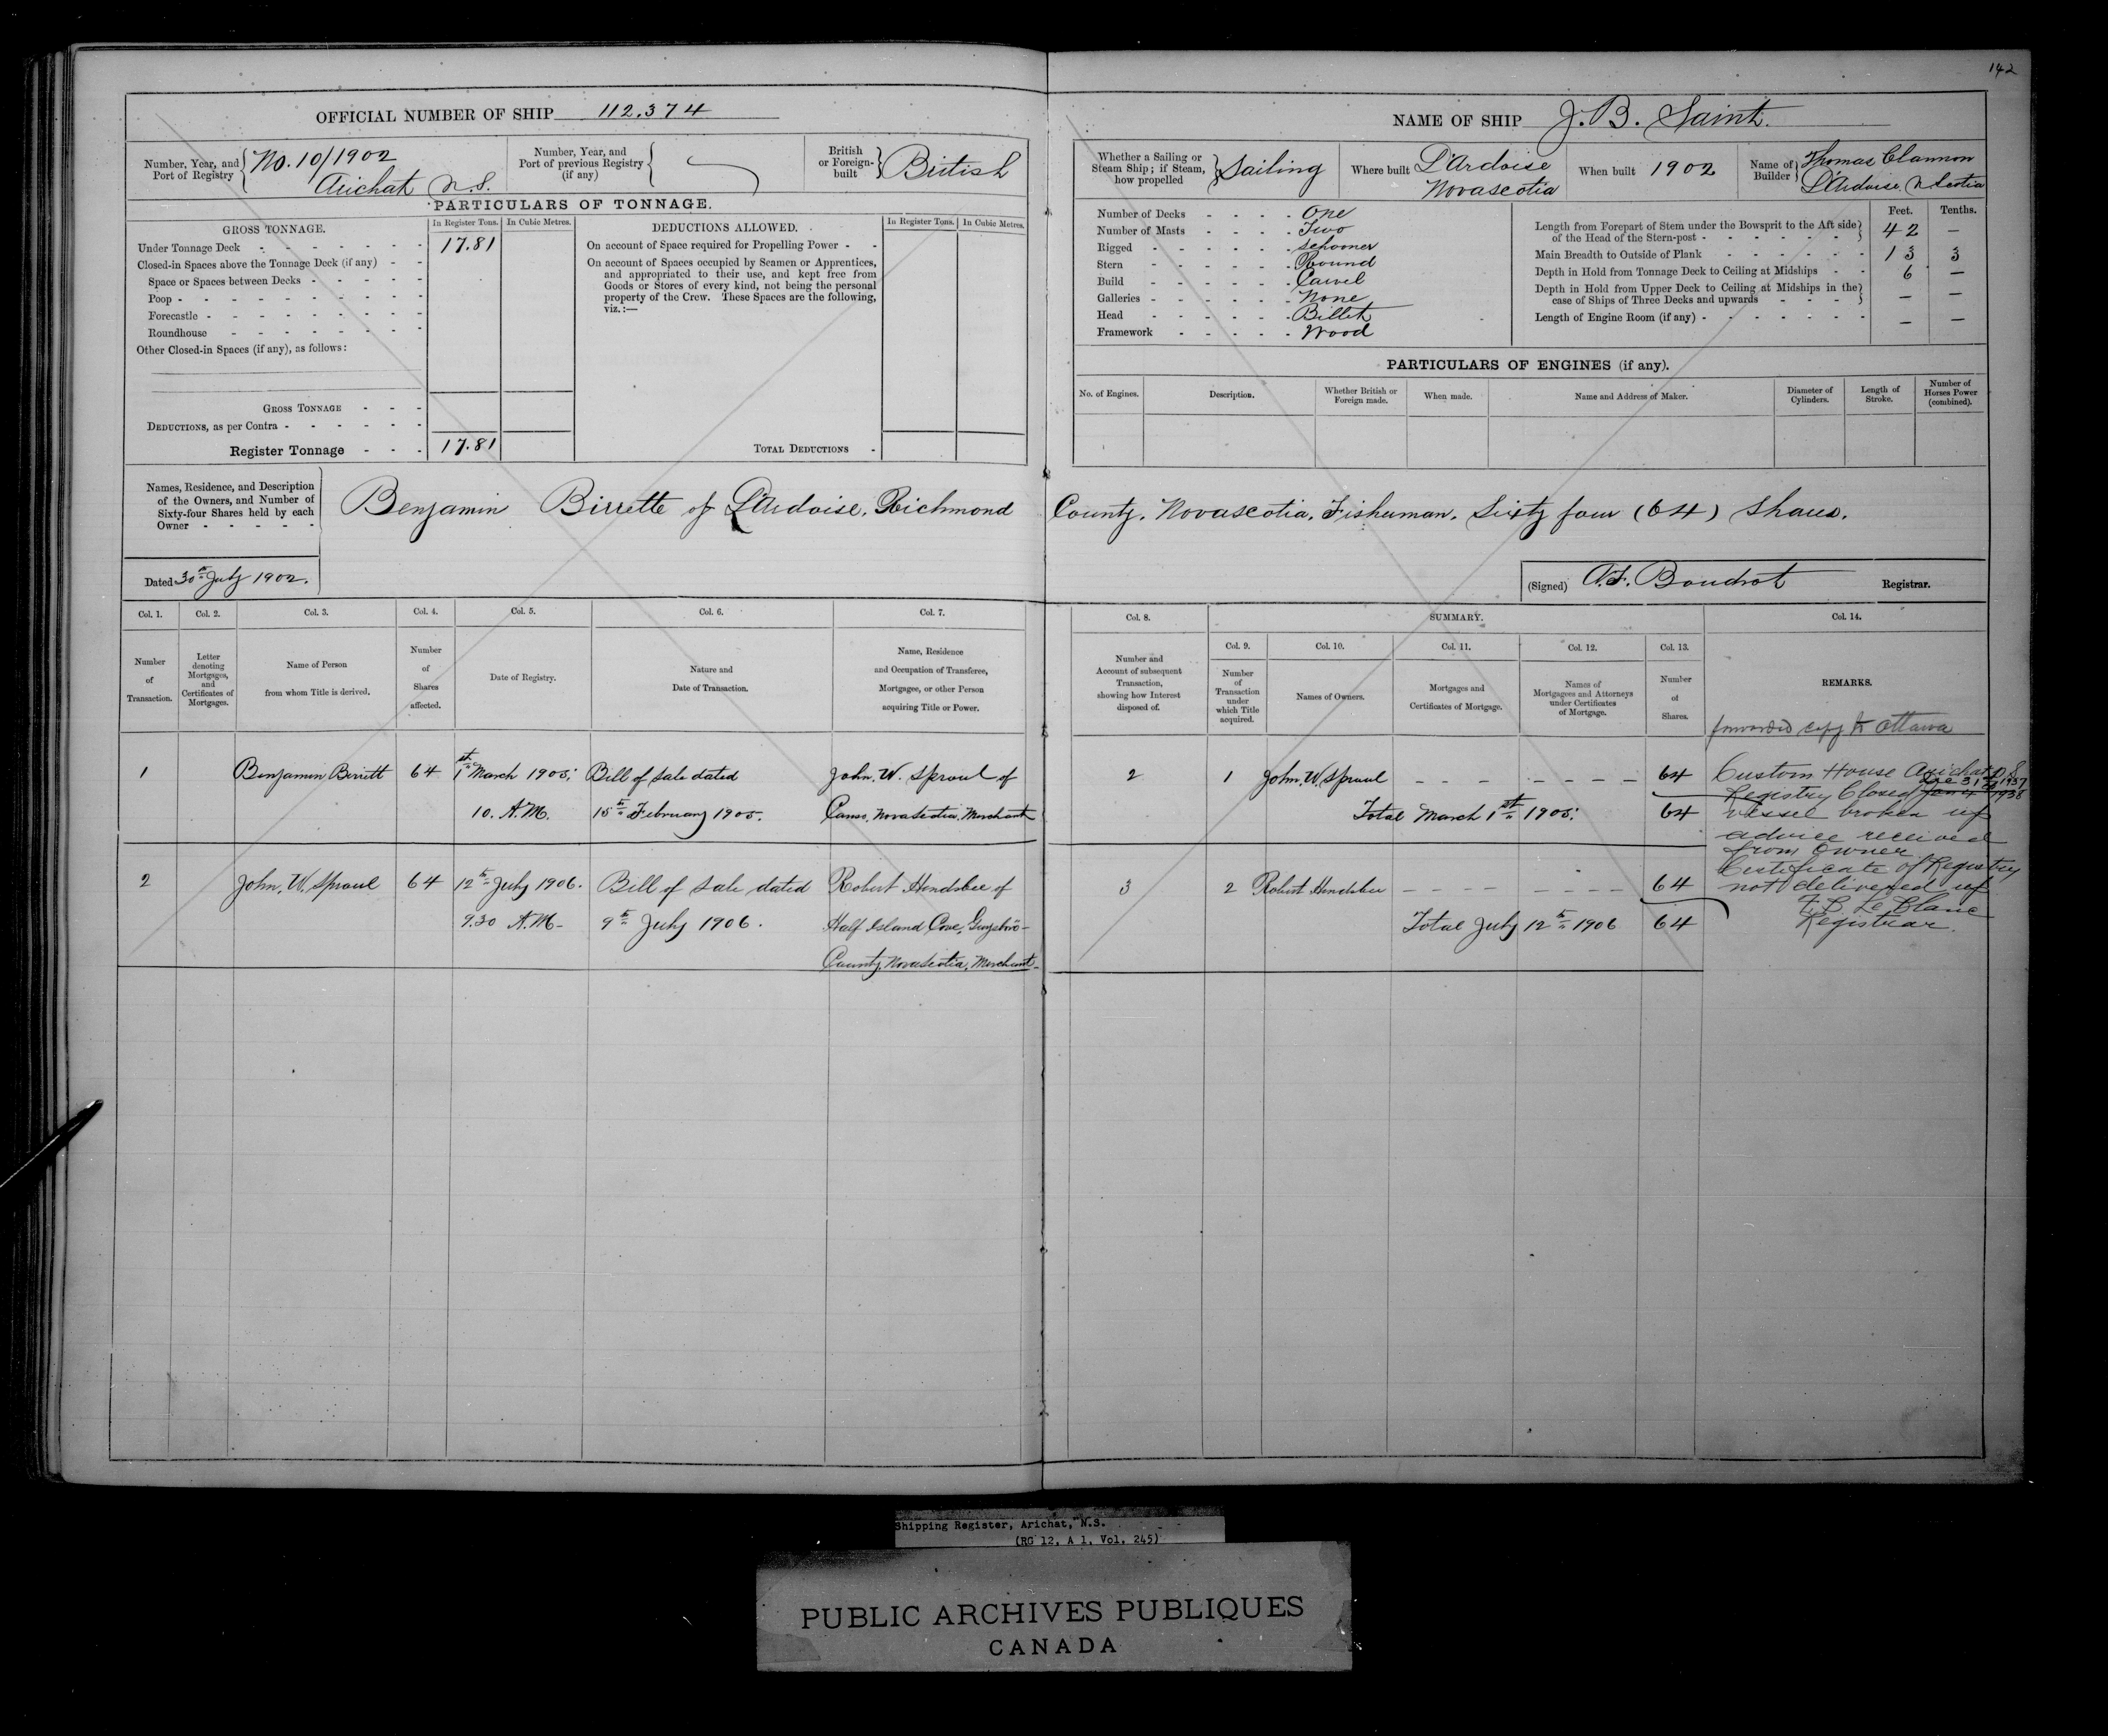 142
OFFICIAL NUMBER OF SHIP 112.374
Number, Year, and Port of Registry { No. 10/1902 Arichat N.S.
Number, Year, and Port of previous Registry (if any) {
British or Foreign-built } British
PARTICULARS OF TONNAGE.
GROSS TONNAGE. In Register Tons. In Cubic Metres.
Under Tonnage Deck - - - - - - - 17.81
Closed-in Spaces above the Tonnage Deck (if any) - -
Space or Spaces between Decks - - - - -
Poop - - - - - - - - - -
Forecastle - - - - - - - - -
Roundhouse - - - - - - - -
Other Closed-in Spaces (if any), as follows:
GROSS TONNAGE - - -
DEDUCTIONS, as per Contra - - - - - -
Register Tonnage - - - 17.81
DEDUCTIONS ALLOWED. In Register Tons. In Cubic Metres.
On account of Space required for Propelling Power - -
On account of Spaces occupied by Seamen or Apprentices,
and appropriated to their use, and kept free from
Goods or Stores of every kind, not being the personal
property of the Crew. These Spaces are the following,
viz.:—
TOTAL DEDUCTIONS -
NAME OF SHIP J. B. Saint.
Whether a Sailing or Steam Ship; if Steam, how propelled } Sailing
Where built L'Ardoise Novascotia
When built 1902
Name of Builder } Thomas Clannon L'Ardoise. N Scotia
Number of Decks - - - - One
Number of Masts - - - - Two
Rigged - - - - - - Schooner
Stern - - - - - - Round
Build - - - - - - Carvel
Galleries - - - - - - None
Head - - - - - - Billet
Framework - - - - - Wood
Feet. Tenths.
Length from Forepart of Stem under the Bowsprit to the Aft side of the Head of the Stern-post - - - - - - } 42 —
Main Breadth to Outside of Plank - - - - - - 13 3
Depth in Hold from Tonnage Deck to Ceiling at Midships - - 6 —
Depth in Hold from Upper Deck to Ceiling at Midships in the case of Ships of Three Decks and upwards - - - - } — —
Length of Engine Room (if any) - - - - - - - — —
PARTICULARS OF ENGINES (if any).
No. of Engines. Description. Whether British or Foreign made. When made. Name and Address of Maker. Diameter of Cylinders. Length of Stroke. Number of Horses Power (combined).
Names, Residence, and Description
of the Owners, and Number of
Sixty-four Shares held by each
Owner - - - - -
Benjamin Birrette of L'Ardoise, Richmond County. Novascotia. Fisherman. Sixty four (64) Shares.
Dated 30th July 1902.
(Signed) Boudrot Registrar.
Col. 1. Col. 2. Col. 3. Col. 4. Col. 5. Col. 6. Col. 7.
Number of Transaction.
Letter denoting Mortgages, and Certificates of Mortgages.
Name of Person from whom Title is derived.
Number of Shares affected.
Date of Registry.
Nature and Date of Transaction.
Name, Residence and Occupation of Transferee, Mortgagee, or other Person acquiring Title or Power.
Col. 8. SUMMARY. Col. 14.
Col. 9. Col. 10. Col. 11. Col. 12. Col. 13.
Number and Account of subsequent Transaction, showing how Interest disposed of.
Number of Transaction under which Title acquired.
Names of Owners.
Mortgages and Certificates of Mortgage.
Names of Mortgagees and Attorneys under Certificates of Mortgage.
Number of Shares.
REMARKS.
1 Benjamin Birrett 64 1st March 1905: Bill of Sale dated John. W. Sproul of
10. A.M. 15th February 1905. Canso, NovaScotia. Merchant
2 John. W. Sproul 64 12th July 1906. Bill of Sale dated Robert Hendsbee of
9.30 A.M- 9th July 1906. Half Island Cove, Guysbro-
County, NovaScotia, Merchant-
2 1 John. W. Sproul - - - - - - - 64
Total March 1st 1905: 64
3 2 Robert Hendsbee - - - - - - - - 64
Total July 12th 1906 64
forwarded copy to Ottawa
Custom House Arichat N.S.
Dec 31st 1937
Registry Closed Jan'y 1938
vessel broken up
advice received
from Owner.
Certificate of Registry
not delivered up
Le Blanc
Registrar.
Shipping Register, Arichat, N.S.
(RG 12, A 1, Vol. 245)
PUBLIC ARCHIVES PUBLIQUES
CANADA